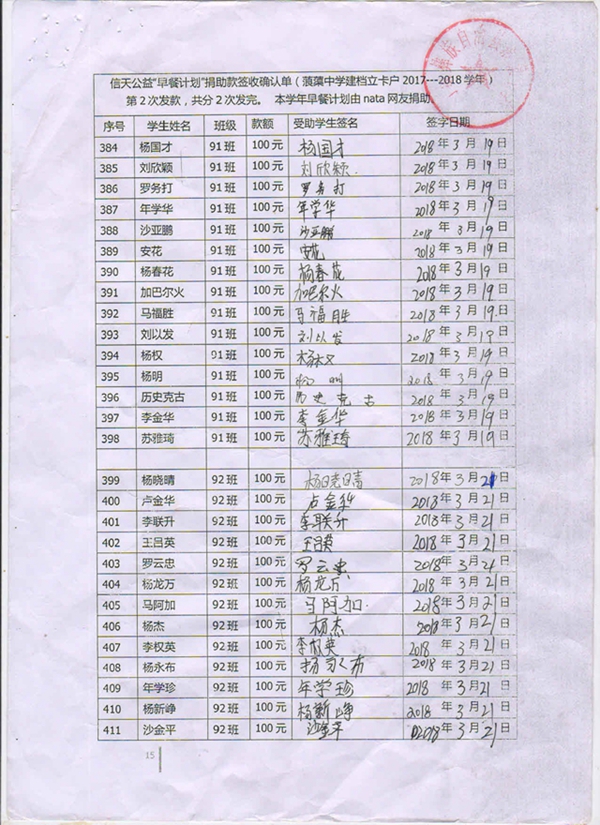 信天公益“早餐计划”捐助款签收确认单（蒗蕖中学建档立卡户2017---2018学年）
第2次发款，共分2次发完。 本学年早餐计划由nata网友捐助。
序号 学生姓名 班级 款额 受助学生签名 签字日期
384 杨国才 91班 100元 杨国才 2018年3月19日
385 刘欣颖 91班 100元 刘欣颖 2018年3月19日
386 罗务打 91班 100元 罗务打 2018年3月19日
387 年学华 91班 100元 年学华 2018年3月19日
388 沙亚鹏 91班 100元 沙亚鹏 2018年3月19日
389 安花 91班 100元 安花 2018年3月19日
390 杨春花 91班 100元 杨春花 2018年3月19日
391 加巴尔火 91班 100元 加巴尔火 2018年3月19日
392 马福胜 91班 100元 马福胜 2018年3月19日
393 刘以发 91班 100元 刘以发 2018年3月19日
394 杨权 91班 100元 杨权 2018年3月19日
395 杨明 91班 100元 杨明 2018年3月19日
396 历史克古 91班 100元 历史克古 2018年3月19日
397 李金华 91班 100元 李金华 2018年3月19日
398 苏雅琦 91班 100元 苏雅琦 2018年3月19日
399 杨晓晴 92班 100元 杨晓晴 2018年3月21日
400 卢金华 92班 100元 卢金华 2018年3月21日
401 李联升 92班 100元 李联升 2018年3月21日
402 王吕英 92班 100元 王吕英 2018年3月21日
403 罗云忠 92班 100元 罗云忠 2018年3月21日
404 杨龙万 92班 100元 杨龙万 2018年3月21日
405 马阿加 92班 100元 马阿加 2018年3月21日
406 杨杰 92班 100元 杨杰 2018年3月21日
407 李权英 92班 100元 李权英 2018年3月21日
408 杨永布 92班 100元 杨永布 2018年3月21日
409 年学珍 92班 100元 年学珍 2018年3月21日
410 杨新峥 92班 100元 杨新峥 2018年3月21日
411 沙金平 92班 100元 沙金平 2018年3月21日
15